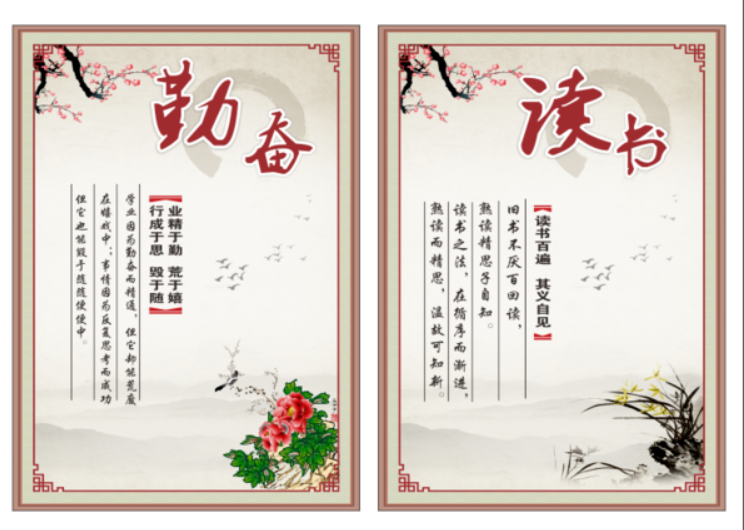 勤奋
业精于勤 荒于嬉
行成于思 毁于随
学业因为勤奋而精通，但它却能荒废
在嬉戏中；事情因为反复思考而成功
但它也能毁于随随便便中。
读书
读书百遍 其义自见
旧书不厌百回读，
熟读精思子自知。
读书之法，在循序而渐进，
熟读而精思，温故可知新。